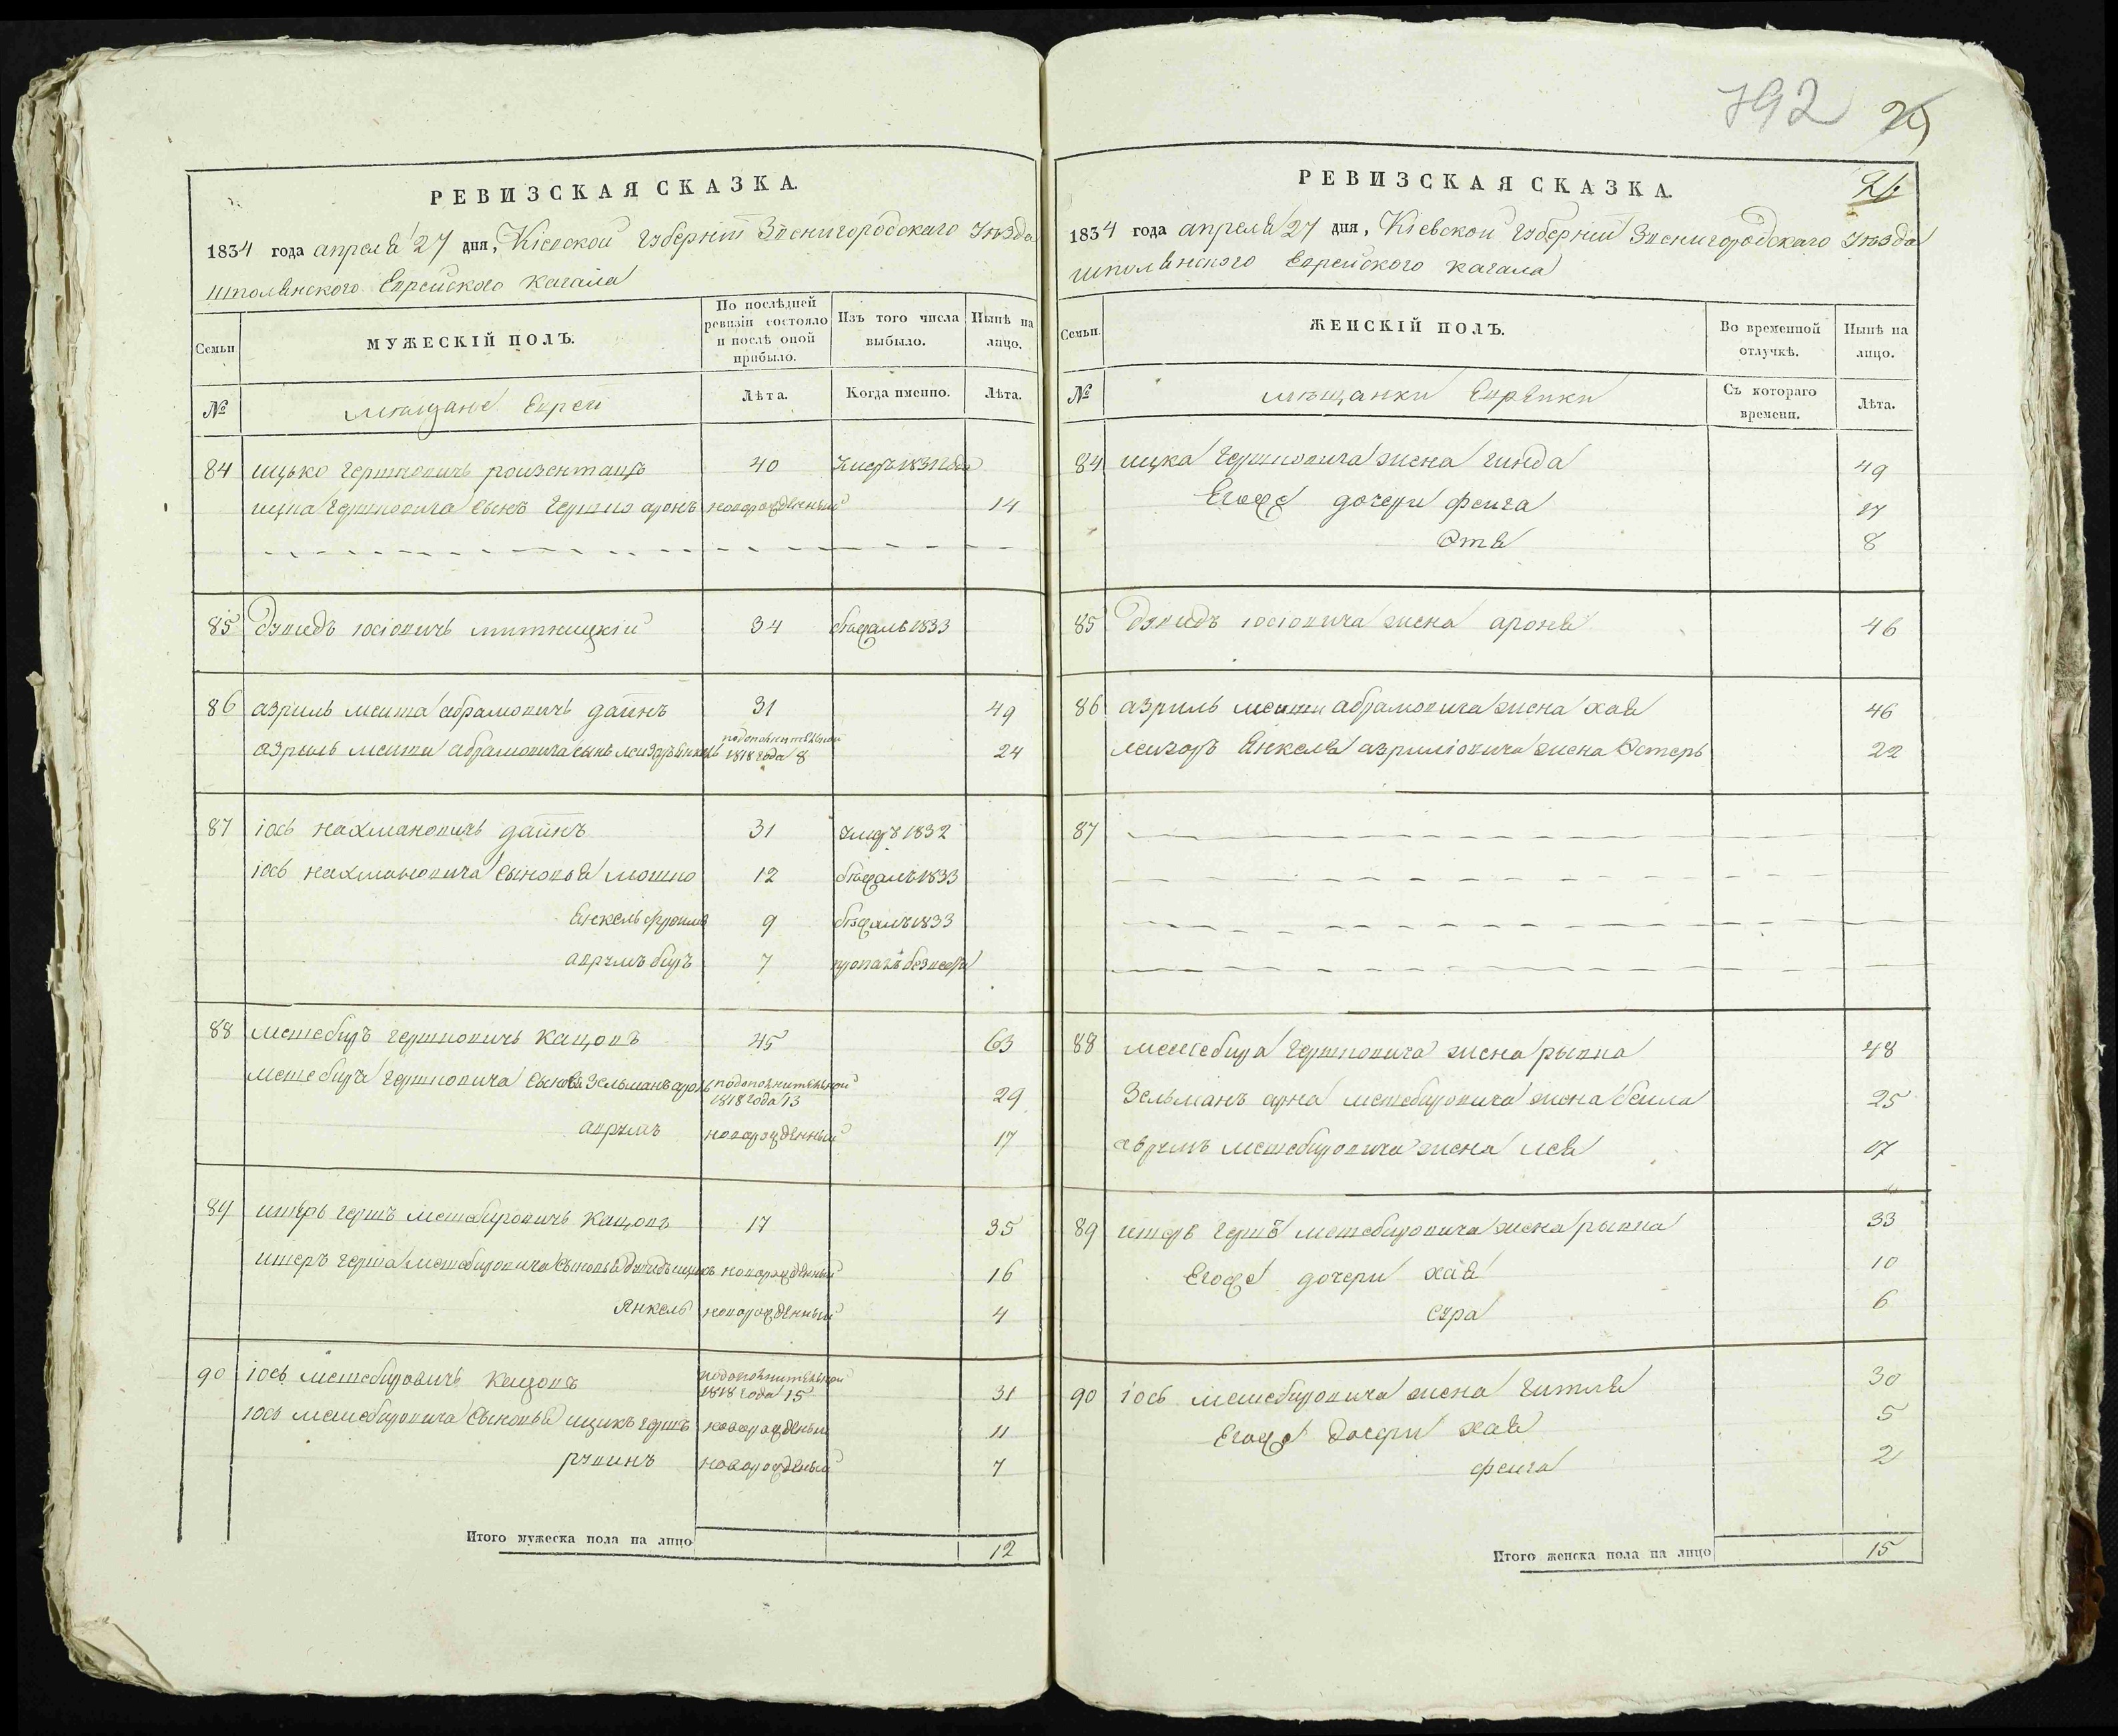 792
РЕВИЗСКАЯ СКАЗКА.
1834 года апреля 27 дня, Кіевской губерніи Звенигородскаго уѣзда
шполянского Еврейского Кагала
Семьи
МУЖЕСКІЙ ПОЛЪ.
По послѣдней ревизіи состояло и послѣ оной прибыло.
Изъ того числа выбыло.
Нынѣ на лицо.
№
мѣщане Евреи
Лѣта.
Когда именно.
Лѣта.
84 ицько гершковичъ 40
ицка гершковича сынъ гершко аронъ новорожденный 14
85 дувидъ іосіовичъ митницкій 34 бѣжалъ 1833
86 азриль меита абрамовичъ даинъ 31 49
азриль меити абрамовича сынъ подополнительной 1818 года 8 24
87 іось нахмановичъ даинъ 31 умеръ 1832
іось нахмановича сыновья мошко 12 бѣжалъ 1833
Янкель фроимъ 9 бѣжалъ 1833
аврумъ беръ 7 пропалъ
88 мешеберъ гершковичъ кацовъ 45 63
мешебера гершковича сыновья Зельманъ аронъ подополнительной 1818 года 13 29
аврумъ новорожденный 17
89 гершъ мешеберовичъ кацовъ 17 35
герша мешеберовича сыновья дувидъ ицикъ новорожденный 16
Янкель новорожденный 4
90 іось мешеберовичъ кацовъ подополнительной 1818 года 15 31
іось мешеберовича сыновья ицикъ гершъ новорожденный 11
рувинъ новорожденный 7
Итого мужеска пола на лицо 12
РЕВИЗСКАЯ СКАЗКА.
1834 года апреля 27 дня, Кіевской губерніи Звенигородскаго уѣзда
шполянского Еврейского кагала
Семьи.
ЖЕНСКІЙ ПОЛЪ.
Во временной отлучкѣ.
Нынѣ на лицо.
№
мѣщанки Еврейки
Съ котораго времени.
Лѣта.
84 ицка гершковича жена гинда 49
Егожъ дочери феига 17
Этя 8
85 дувидъ іосіовича жена 46
86 азриль меити абрамовича жена хая 46
Янкеля азриліовича жена Эстеръ 22
87
88 мешебера гершковича жена рывка 48
Зельманъ арна мешеберовича жена беила 25
аврумъ мешеберовича жена лея 17
89 герша мешеберовича жена рывка 33
Егожъ дочери хая 10
сура 6
90 іось мешеберовича жена гитля 30
Егожъ дочери хая 5
феига 2
Итого женска пола на лицо 15